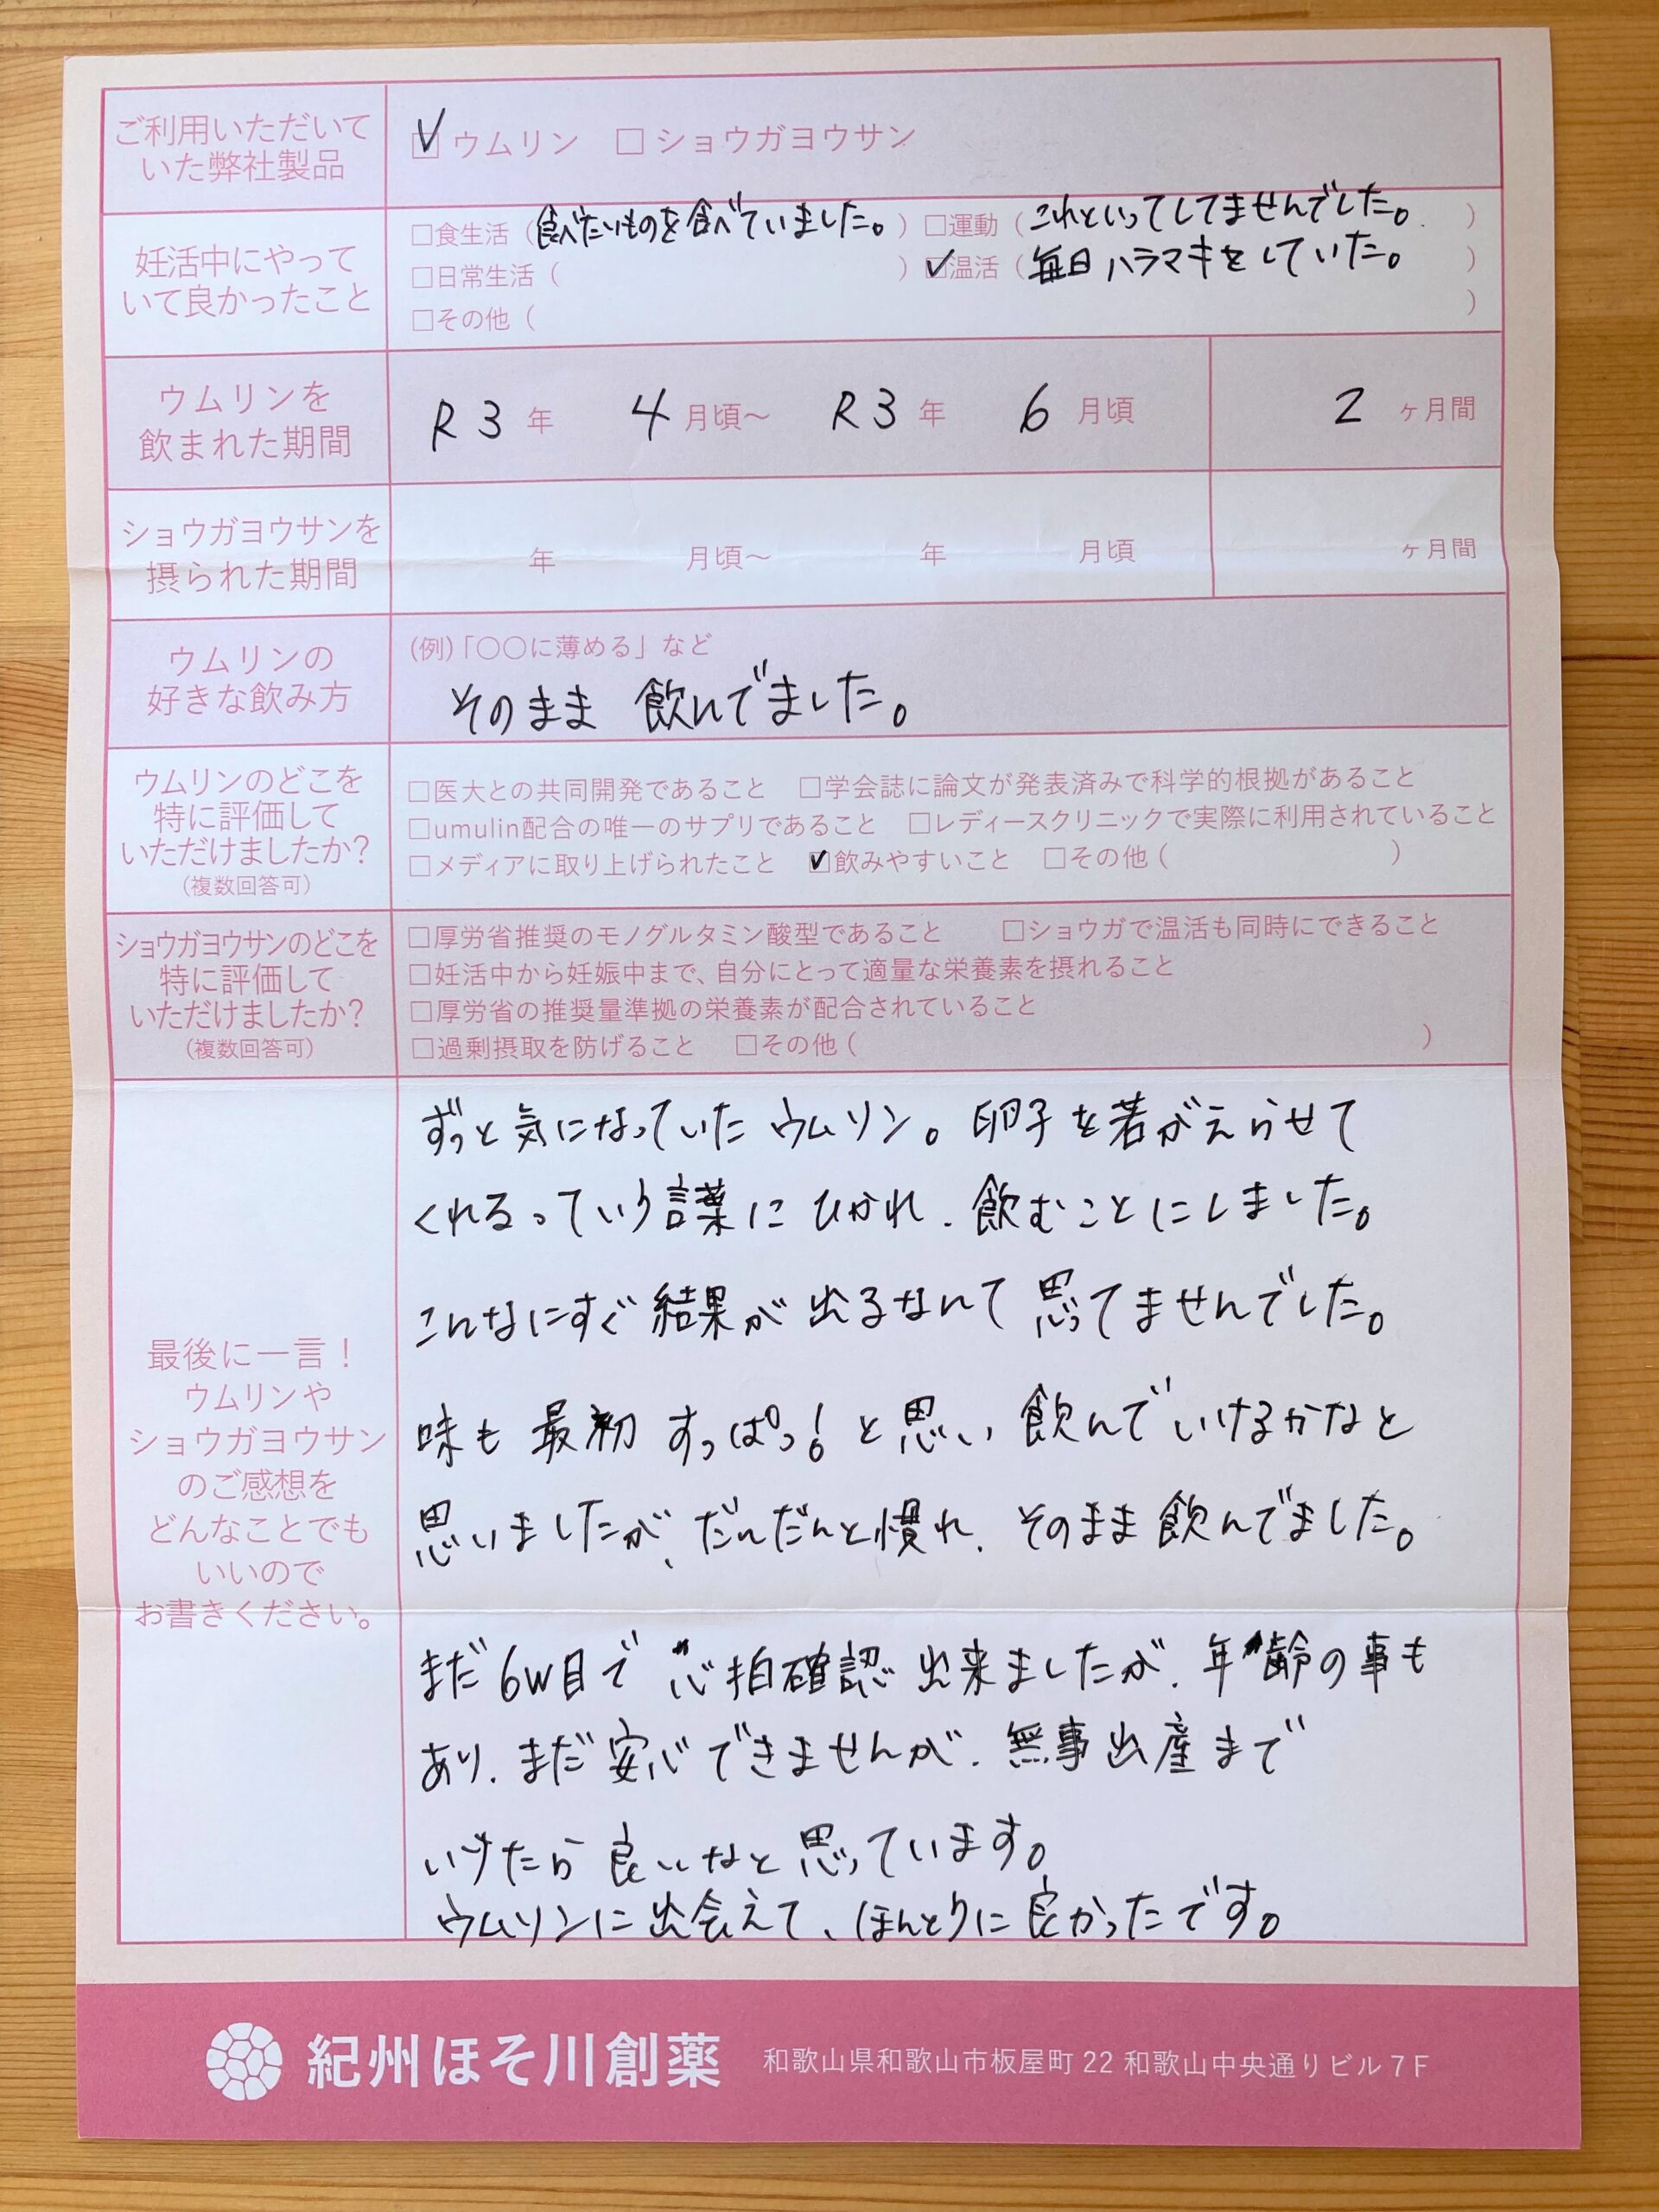 ご利用いただいて
いた弊社製品
☑ウムリン □ショウガヨウサン
妊活中にやって
いて良かったこと
□食生活（食べたいものを食べていました。） □運動（これといってしてませんでした。）
□日常生活（ ） ☑温活（毎日ハラマキをしていた。）
□その他（ ）
ウムリンを
飲まれた期間
R3年 4月頃〜 R3年 6月頃 2ヶ月間
ショウガヨウサンを
摂られた期間
年 月頃〜 年 月頃 ヶ月間
ウムリンの
好きな飲み方
(例)「〇〇に薄める」など
そのまま 飲んでました。
ウムリンのどこを
特に評価して
いただけましたか?
(複数回答可)
□医大との共同開発であること □学会誌に論文が発表済みで科学的根拠があること
□umulin配合の唯一のサプリであること □レディースクリニックで実際に利用されていること
□メディアに取り上げられたこと ☑飲みやすいこと □その他（ ）
ショウガヨウサンのどこを
特に評価して
いただけましたか?
(複数回答可)
□厚労省推奨のモノグルタミン酸型であること □ショウガで温活も同時にできること
□妊活中から妊娠中まで、自分にとって適量な栄養素を摂れること
□厚労省の推奨量準拠の栄養素が配合されていること
□過剰摂取を防げること □その他（ ）
最後に一言！
ウムリンや
ショウガヨウサン
のご感想を
どんなことでも
いいので
お書きください。
ずっと気になっていたウムリン。卵子を若がえらせて
くれるっていう言葉にひかれ、飲むことにしました。
こんなにすぐ結果が出るなんて思ってませんでした。
味も最初すっぱっ！と思い飲んでいけるかなと
思いましたが、だんだんと慣れ、そのまま飲んでました。
まだ6W目で心拍確認出来ましたが、年齢の事も
あり、まだ安心できませんが、無事出産まで
いけたら良いなと思っています。
ウムリンに出会えて、ほんとうに良かったです。
紀州ほそ川創薬 和歌山県和歌山市板屋町22 和歌山中央通りビル7F